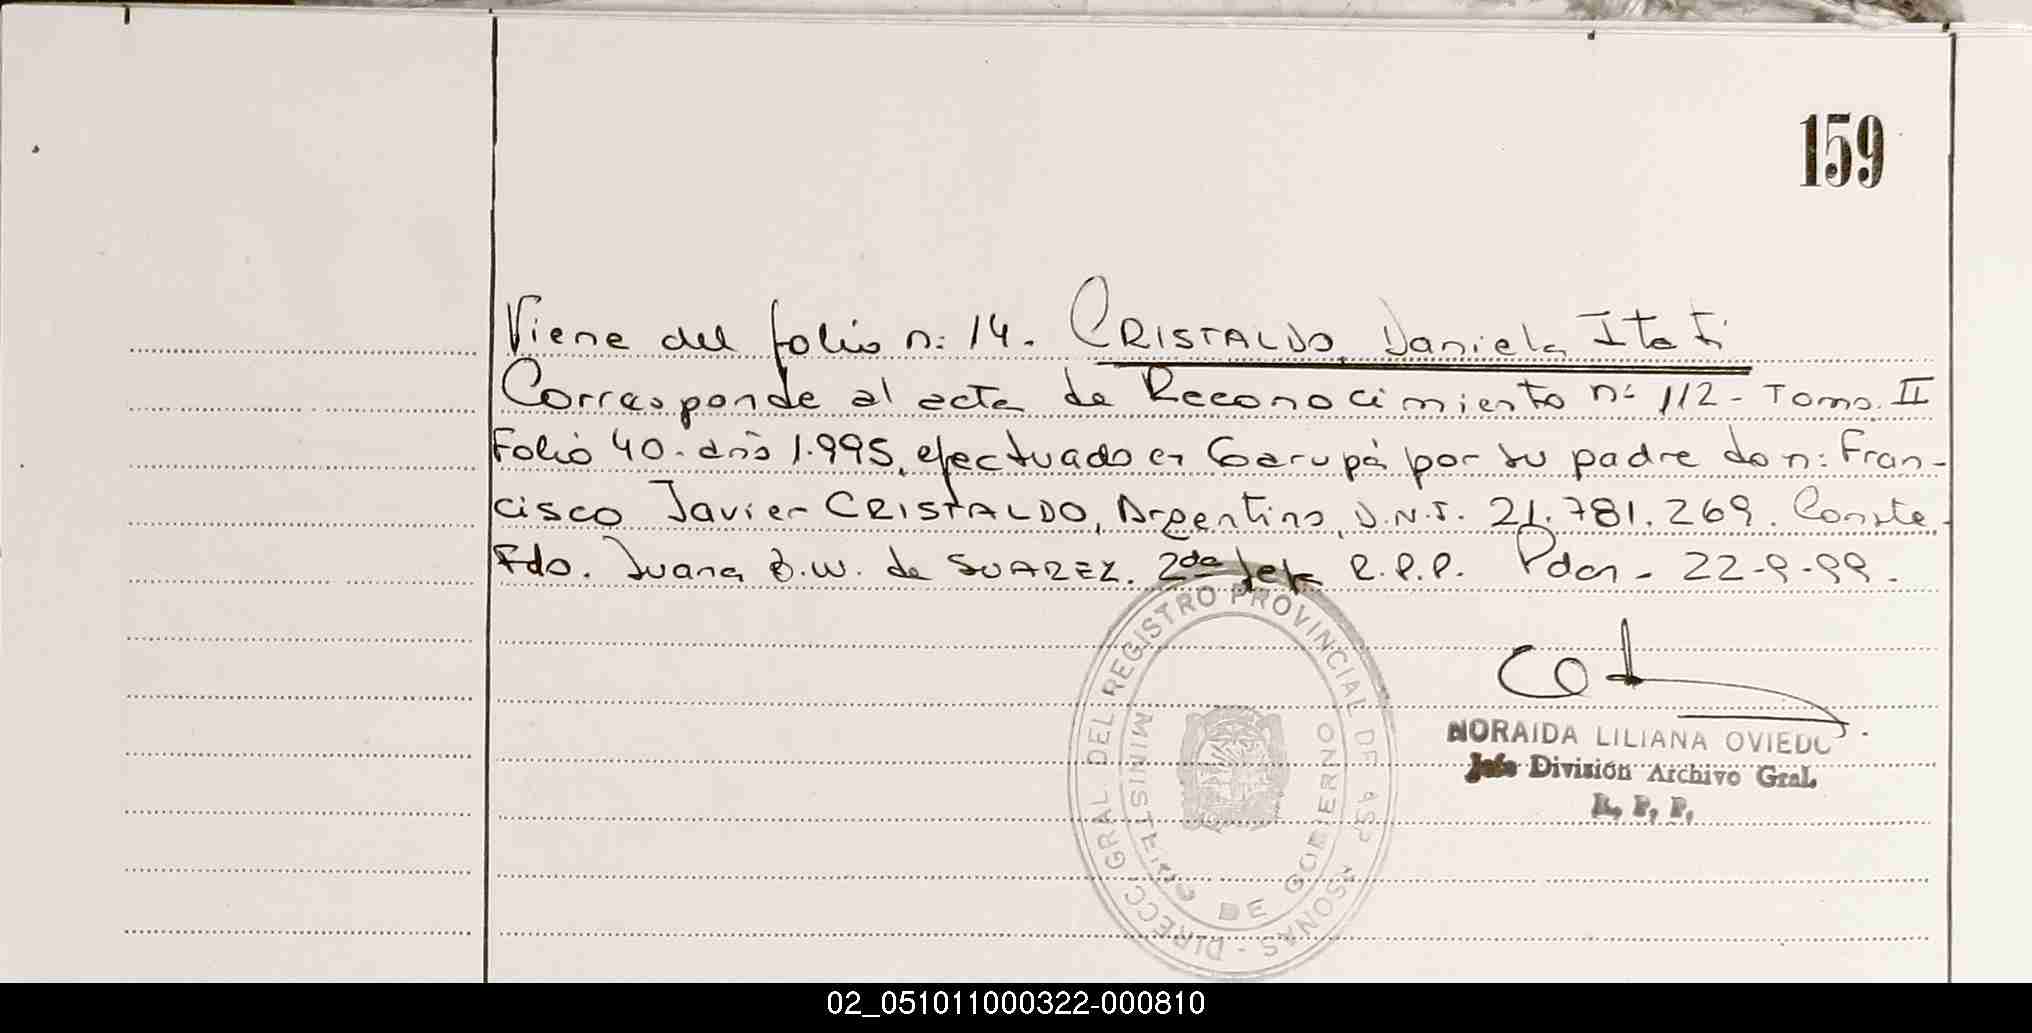 159
Viene del folio n: 14. CRISTALDO, Daniela Itatí
Corresponde al acta de Reconocimiento n: 112 - Tomo. II
Folio 40. año 1.995, efectuado en Garupá por su padre don: Fran-
cisco Javier CRISTALDO, Argentino, D.N.I. 21.781.269. Conste.
Fdo. Juana B.W. de SUAREZ. 2da Jefe R.P.P. Pdas - 22-9-99.
DIRECC. GRAL. DEL REGISTRO PROVINCIAL DE
MINISTERIO DE GOBIERNO
NORAIDA LILIANA OVIEDO
Jefe División Archivo Gral.
R. P. P.
02_051011000322-000810